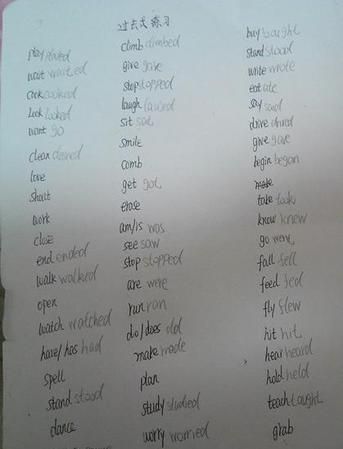 过去式练习
play played
wait waited
cook cooked
look looked
want go
clean cleaned
love
shout
work
close
end ended
walk walked
open
watch watched
have/has had
spell
stand stood
dance
climb climbed
give gave
stop stopped
laugh
sit sat
smile
comb
get got
erase
am/is was
see saw
stop stopped
are were
run ran
do/does did
make made
plan
study studied
worry worried
buy bought
stand stood
write wrote
eat ate
say said
drive
give gave
begin began
take took
know knew
go went
fall fell
feed fed
fly flew
hit hit
hear heard
hold held
teach taught
grab